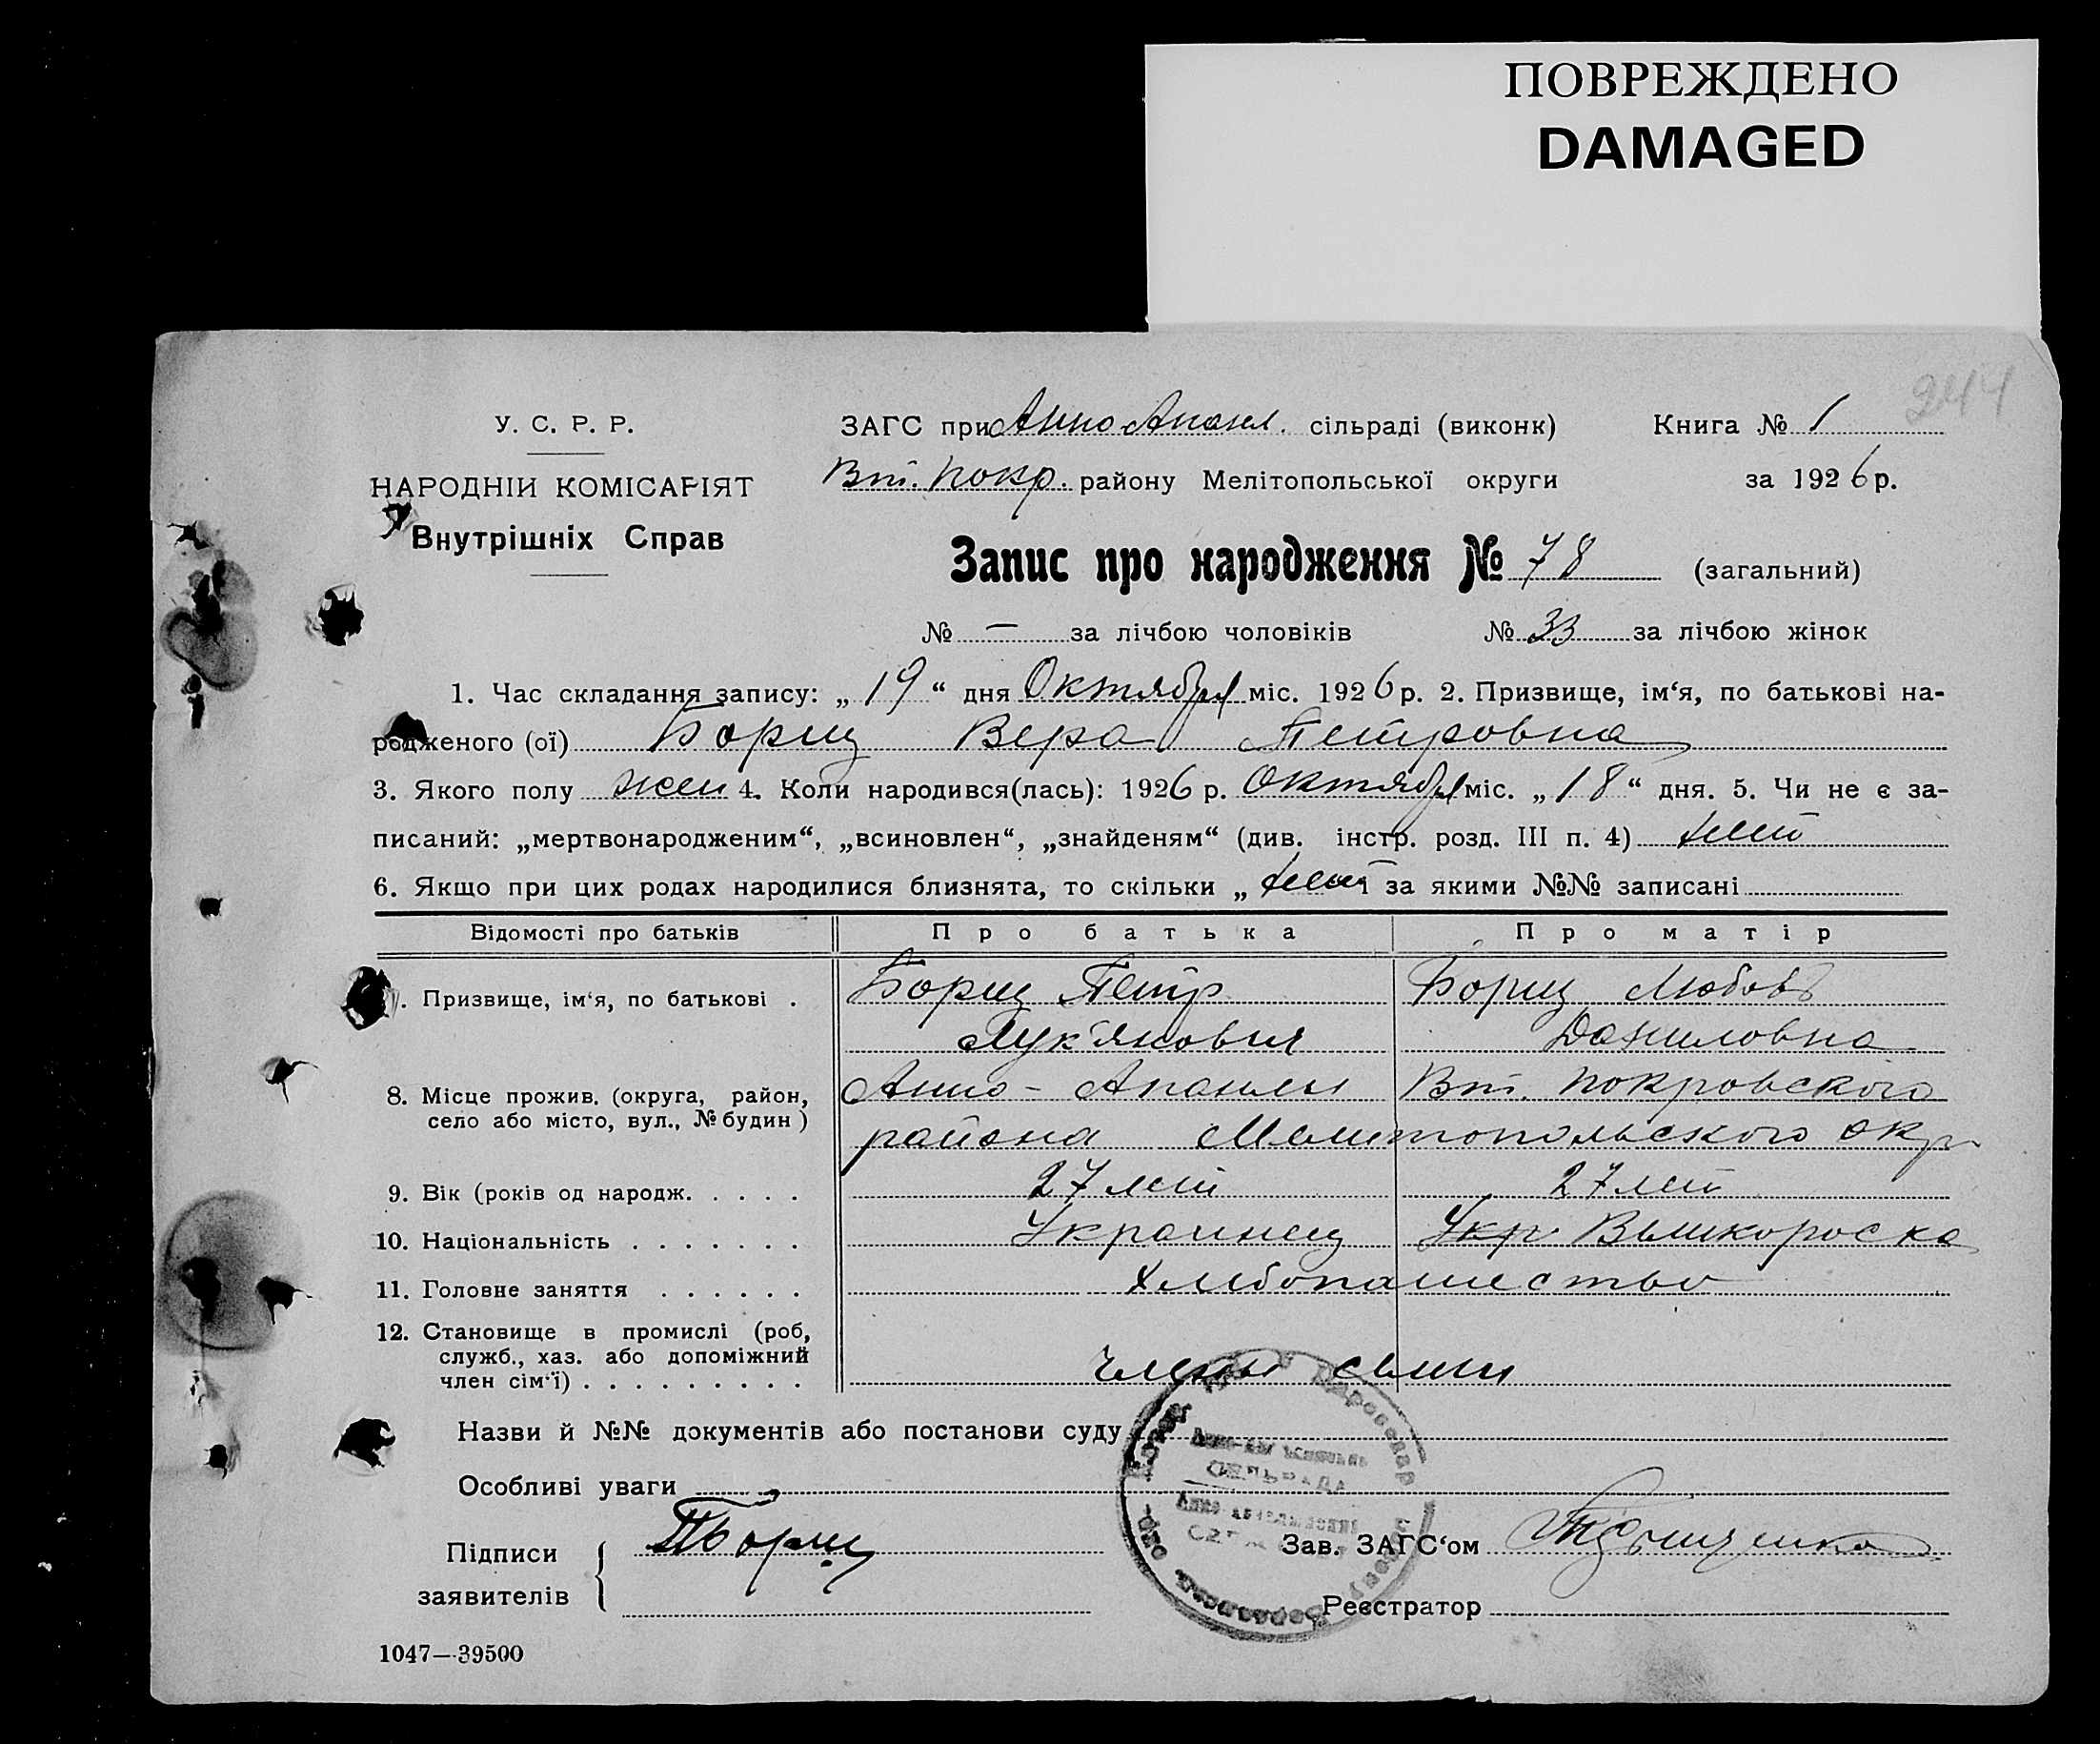 ПОВРЕЖДЕНО
DAMAGED
244
У. С. Р. Р.
НАРОДНІЙ КОМІСАРІЯТ
Внутрішніх Справ
ЗАГС при Анно Апанл. сільраді (виконк)
Вт. Покр. району Мелітопольської округи
Книга № 1
за 1926 р.
Запис про народження № 78 (загальний)
№ — за лічбою чоловіків № 33 за лічбою жінок
1. Час складання запису: „19“ дня Октября міс. 1926 р. 2. Призвище, ім‘я, по батькові на-
родженого (ої) Борщ Вера Петровна
3. Якого полу жен 4. Коли народився(лась): 1926 р. Октября міс. „18“ дня. 5. Чи не є за-
писаний: „мертвонародженим“, „всиновлен“, „знайденям“ (див. інстр. розд. III п. 4) нет
6. Якщо при цих родах народилися близнята, то скільки „ нет і за якими №№ записані
Відомості про батьків Про батька Про матір
7. Призвище, ім‘я, по батькові . Борщ Петр Борщ Любовь
Лук‘янович Даниловна
8. Місце прожив. (округа, район, Анно - Апанлы Вт. Покровского
село або місто, вул., № будин)
района Мелитопольского окр
9. Вік (років од народж. . . . . 27 лет 27 лет
10. Національність . . . . . . . Украинец Укр. Великороска
11. Головне заняття . . . . . . Хлебопашество
12. Становище в промислі (роб,
служб., хаз. або допоміжний
член сім‘ї) . . . . . . . . . члены семи
Назви й №№ документів або постанови суду
Особливі уваги
Підписи
заявителів
ПБорщ
Зав. ЗАГС‘ом
Реєстратор
1047—39500